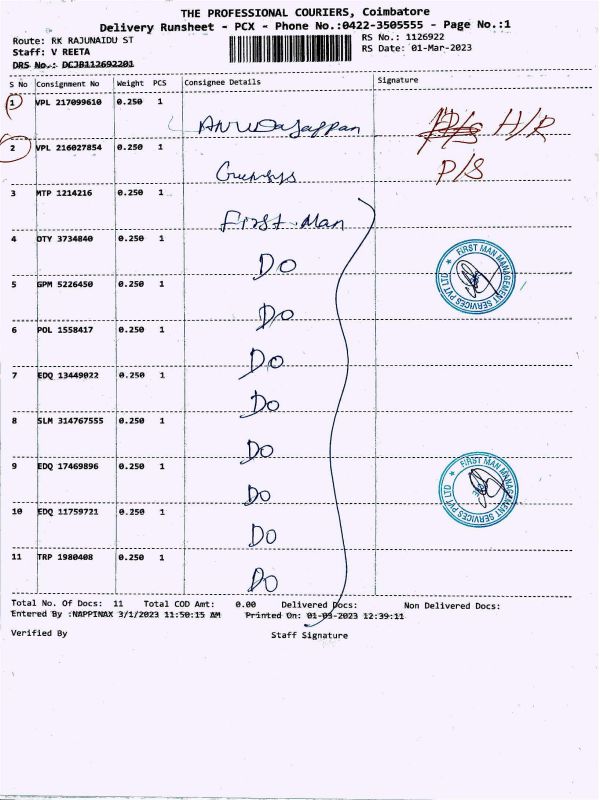 THE PROFESSIONAL COURIERS, Coimbatore
Delivery Runsheet - PCX - Phone No.:0422-3505555 - Page No.:1
Route: RK RAJUNAIDU ST
RS No.: 1126922
Staff: V REETA
RS Date: 01-Mar-2023
DRS No.: DCJB112692201
S No Consignment No Weight PCS Consignee Details Signature
1 VPL 217099610 0.250 1
H/R
2 VPL 216027854 0.250 1
P/S
3 MTP 1214216 0.250 1
First Man
4 OTY 3734840 0.250 1
DO
FIRST MAN MANAGEMENT SERVICES PVT LTD
5 GPM 5226450 0.250 1
DO
6 POL 1558417 0.250 1
DO
7 EDQ 13449022 0.250 1
DO
8 SLM 314767555 0.250 1
DO
9 EDQ 17469896 0.250 1
DO
FIRST MAN MANAGEMENT SERVICES PVT LTD
10 EDQ 11759721 0.250 1
DO
11 TRP 1980408 0.250 1
DO
Total No. Of Docs: 11 Total COD Amt: 0.00 Delivered Docs: Non Delivered Docs:
Entered By :NAPPINAX 3/1/2023 11:50:15 AM Printed On: 01-03-2023 12:39:11
Verified By Staff Signature